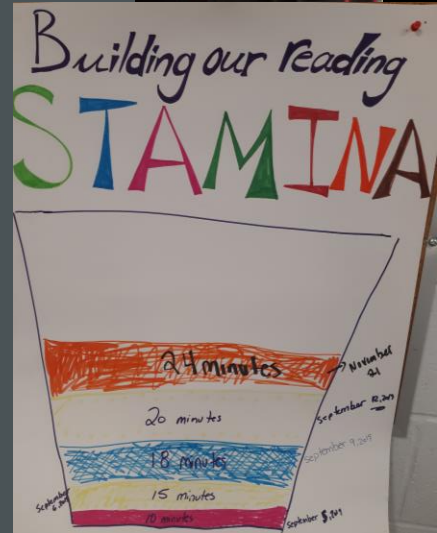 Building our reading
STAMINA
24 minutes
November
21
20 minutes
September 12, 2019
18 minutes
September 9, 2019
15 minutes
September
10 minutes
September